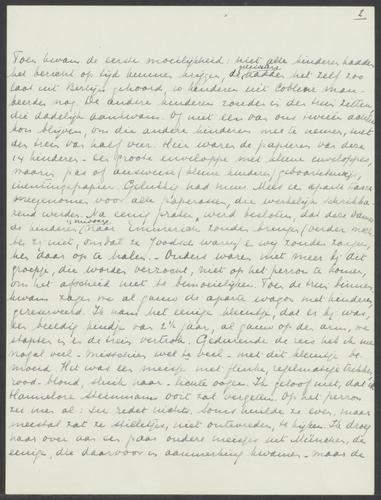 2
Toen kwam de eerste moeilijkheid: niet alle kinderen hadden
het bericht op tijd kunnen krijgen, de hadden het zelf zoo
laat uit Berlijn gehoord, 10 kinderen uit Coblenz
nog. De andere kinderen zouden in den trein zitten,
die dadelijk aankwam. Of niet een van ons tweeën achter
kon blijven, om die andere kinderen mee te nemen, met
den trein van half vier. Hier waren de papieren van deze
14 kinderen - een groote enveloppe met kleine enveloppes,
waarin pas of ausweis (kleine kinderen) geboortebewijs,
papier. Gelukkig had mevr. Mees een aparte tasch
meegenomen voor alle paperassen, die werkelijk schrikba-
rend werden. Na eenig praten, werd besloten, dat deze dame
de kinderen naar Emmerich zouden brengen (verder mochten
ze niet, omdat ze Joodsch waren) en wij zouden zorgen,
hen daar op te halen. - Ouders waren niet meer bij dit
groepje, die worden verzocht, niet op het perron te komen,
om het afscheid niet te bemoeilijken. Toen de trein binnen
kwam zagen we al gauw de aparte wagon met kinderen,
gereserveerd. Ik nam het eenige kleintje, dat er bij was,
een beeldig kindje van 2½ jaar, al gauw op den arm, we
stapten in en de trein vertrok. Gedurende de reis heb ik me
nogal veel - misschien wel te veel - met dit kleintje be-
moeid. Het was een meisje met flinke, regelmatige trekken,
rood-blond, sluik haar - lichte oogen. Ik geloof niet, dat ik
Hannelore Steinmann ooit zal vergeten. Op het perron
zei men al: Sie redet nichts. Soms huilde ze even, maar
meestal zat ze stilletjes, niet ontevreden, te kijken. Ik droeg
haar over aan een paar oudere meisjes uit München, de
eenige, die daarvoor in aanmerking kwamen - maar de